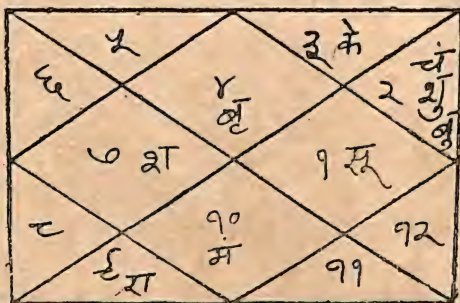 ५
३ के
६
४
बृ
२
चं
शु
बु
७ श
१ सू
८
१०
मं
१२
९
रा
११